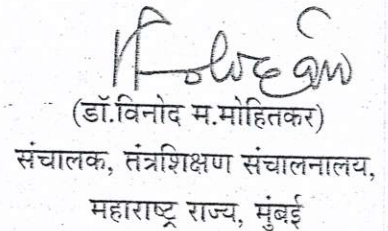 (डॉ.विनोद म.मोहितकर)
संचालक, तंत्रशिक्षण संचालनालय,
महाराष्ट्र राज्य, मुंबई